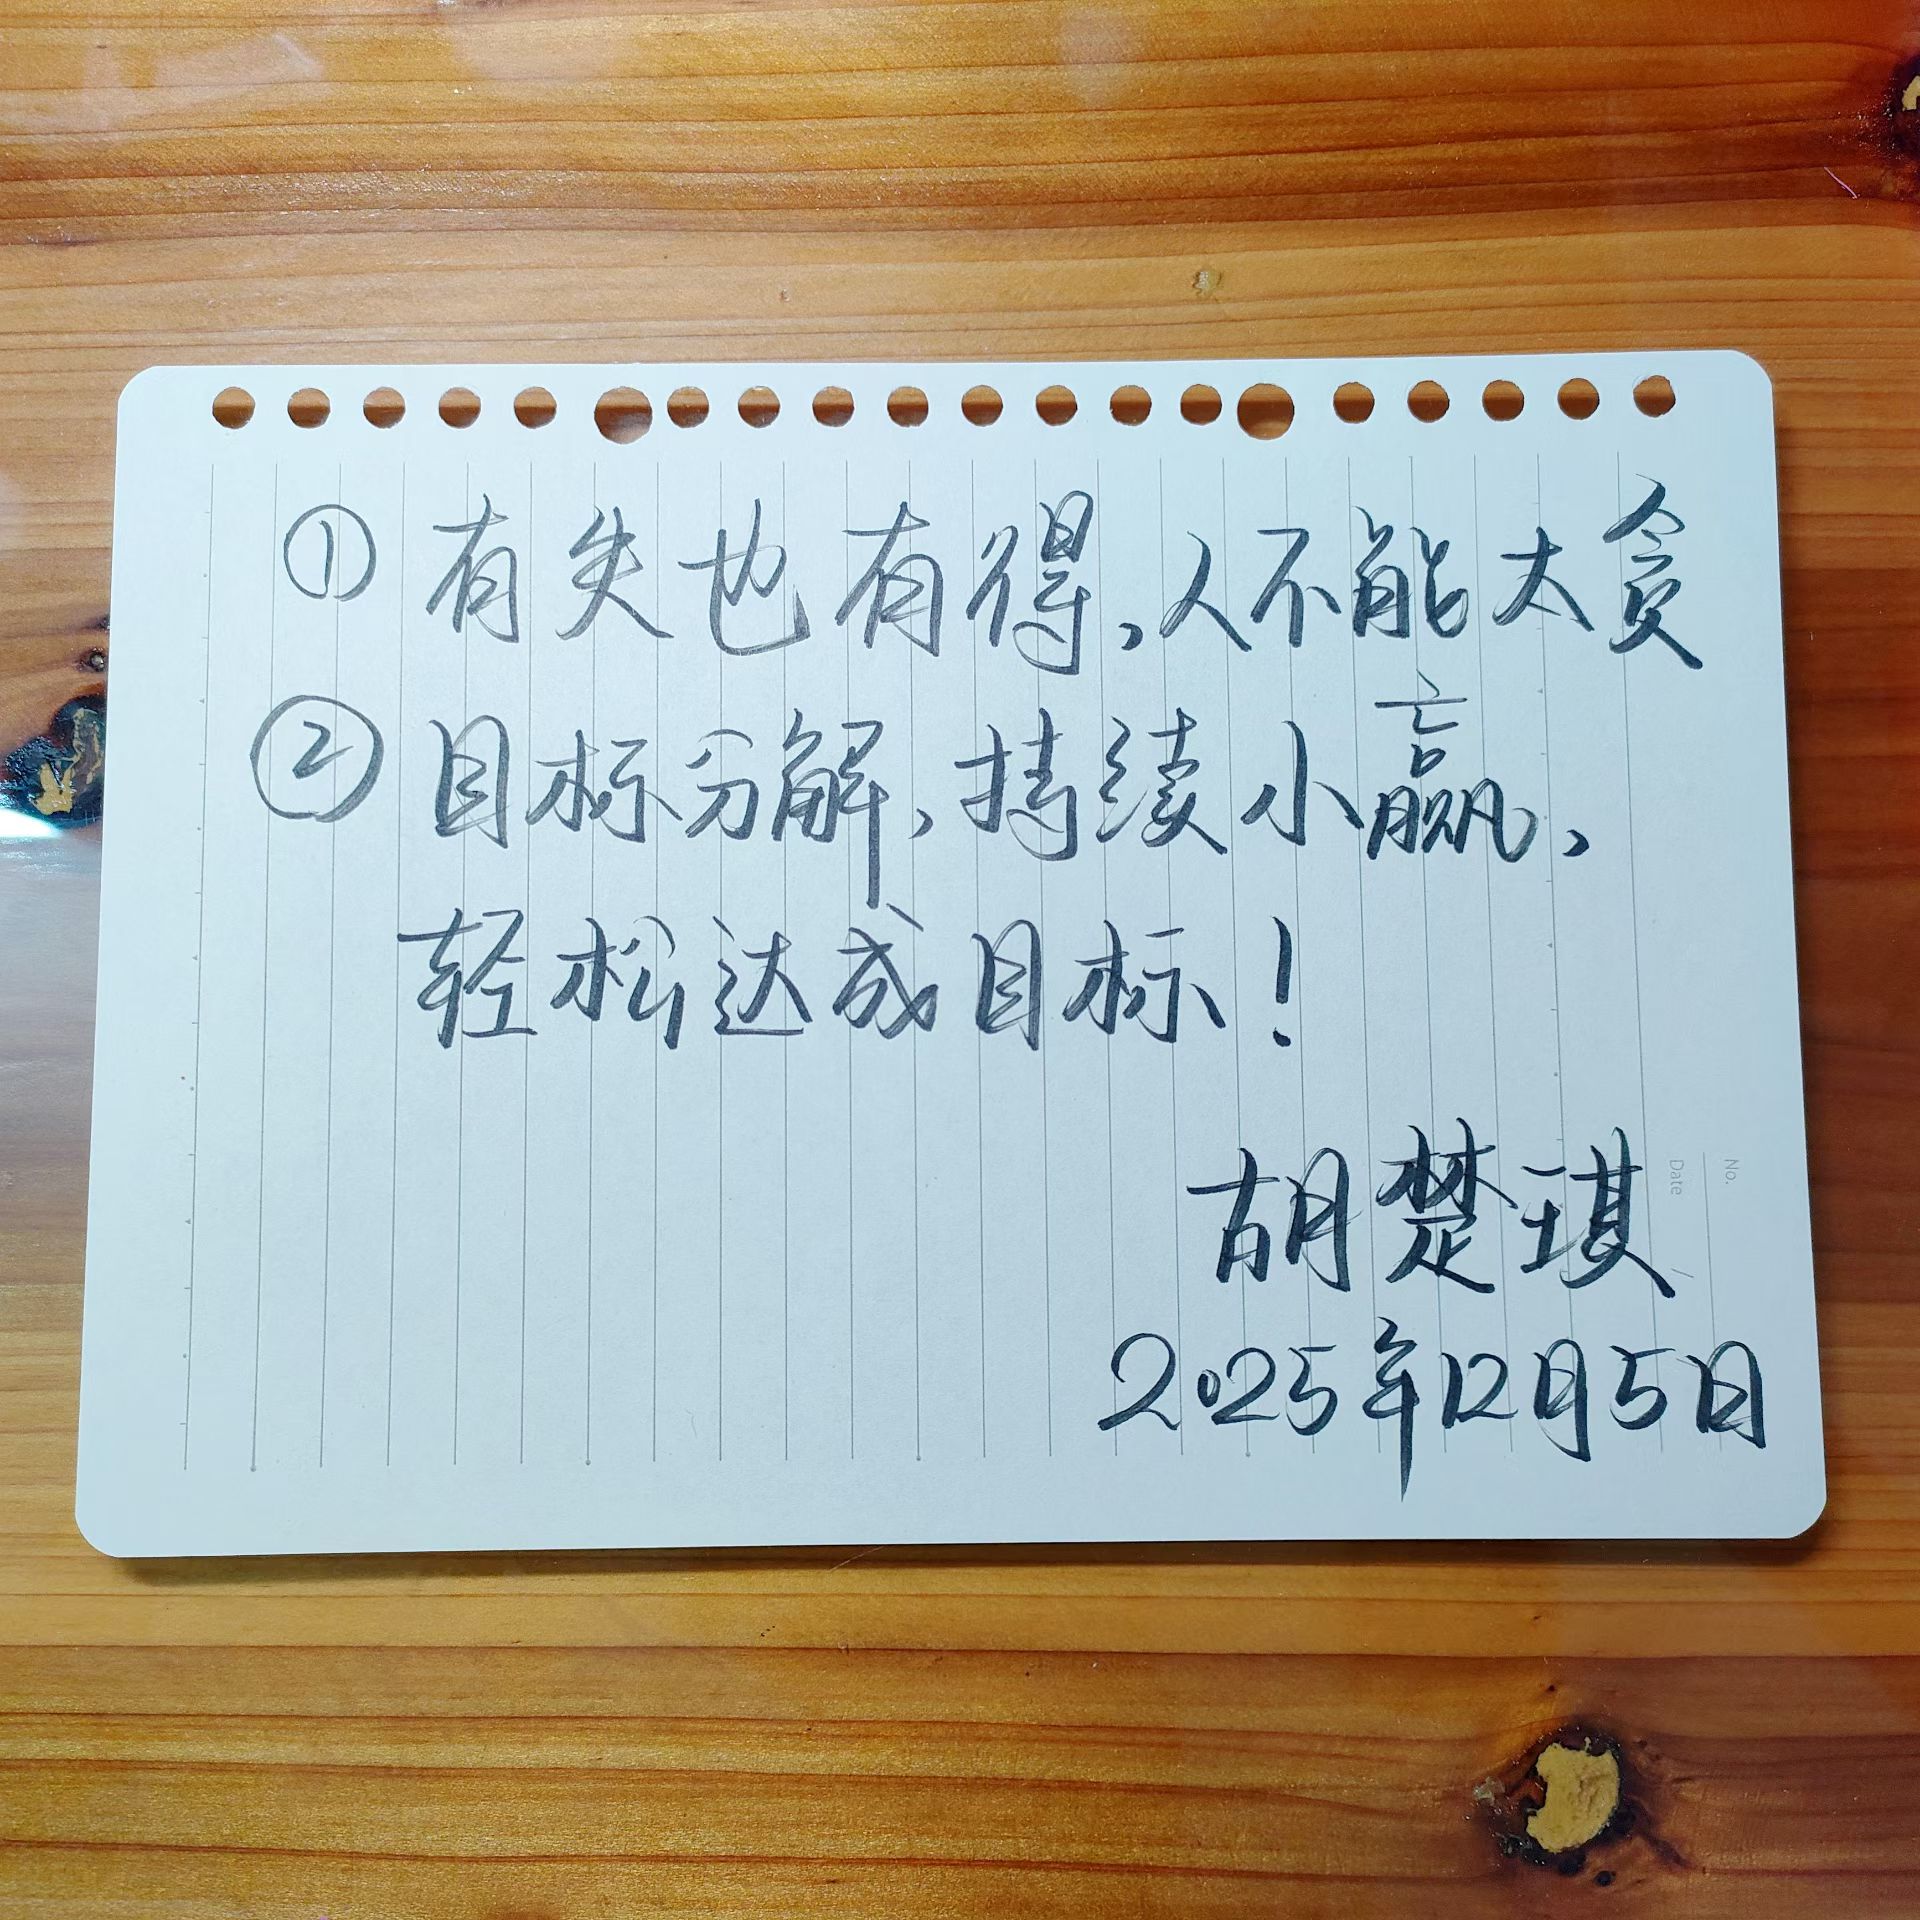 ①有失也有得,人不能太贪
②目标分解,持续小赢,
轻松达成目标!
胡楚琪
2025年12月5日
No.
Date